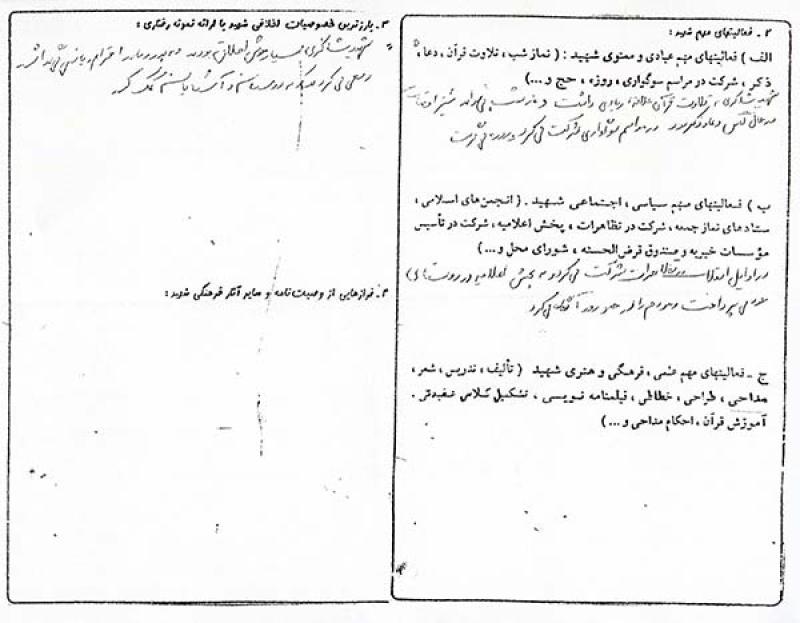 ۲ ـ فعالیتهای مهم شهید :
الف ) فعالیتهای مهم عبادی و معنوی شهید : ( نماز شب ، تلاوت قرآن ، دعا ،
ذکر ، شرکت در مراسم سوگواری ، روزه ، حج و ... )
شهید شاکری ، تلاوت قرآن داشت و نماز شب می خواند
دعا و در مراسم عزاداری شرکت می کرد و روزه می گرفت
ب ) فعالیتهای مهم سیاسی ، اجتماعی شهید . ( انجمن های اسلامی ،
ستادهای نماز جمعه ، شرکت در تظاهرات ، پخش اعلامیه ، شرکت در تأسیس
مؤسسات خیریه و صندوق قرض الحسنه ، شورای محل و ... )
در اوایل انقلاب در تظاهرات شرکت می کرد و به پخش اعلامیه در روستای
می پرداخت و مردم را از آگاه می کرد
ج ـ فعالیتهای مهم علمی ، فرهنگی و هنری شهید ( تألیف ، تدریس ، شعر ،
مداحی ، طراحی ، خطاطی ، فیلمنامه نویسی ، تشکیل کلاس عقیدتی .
آموزش قرآن ، احکام مداحی و ... )
۳ ـ بارزترین خصوصیات اخلاقی شهید با ارائه نمونه رفتاری :
شهید شاکری بسیار خوش اخلاق بودند و به پدر و مادر احترام
سعی می کرد که به دوستان و آشنایانش کمک کند
۴ ـ فرازهایی از وصیت نامه و سایر آثار فرهنگی شهید :